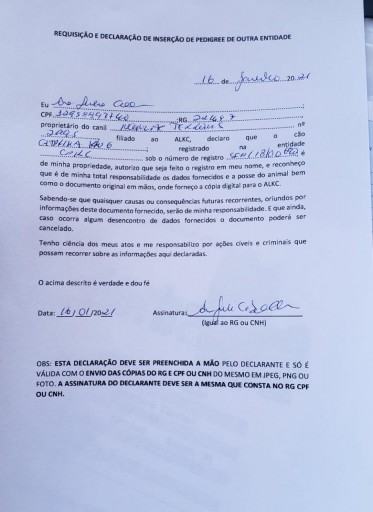 REQUISIÇÃO E DECLARAÇÃO DE INSERÇÃO DE PEDIGREE DE OUTRA ENTIDADE
16 de Janeiro 2021
Eu
CPF :RG
proprietário do canil nº
filiado ao ALKC, declaro que o cão
registrado na entidade
sob o número de registro é
de minha propriedade, autorizo que seja feito o registro em meu nome, e reconheço
que é de minha total responsabilidade os dados fornecidos e a posse do animal bem
como o documento original em mãos, onde forneço a cópia digital para o ALKC.
Sabendo-se que quaisquer causas ou consequências futuras recorrentes, oriundos por
informações deste documento fornecido, serão de minha responsabilidade. E que ainda,
caso ocorra algum desencontro de dados fornecidos o documento poderá ser
cancelado.
Tenho ciência dos meus atos e me responsabilizo por ações cíveis e criminais que
possam recorrer sobre as informações aqui declaradas.
O acima descrito é verdade e dou fé
Data: 16/01/2021 Assinatura:
(Igual ao RG ou CNH)
OBS: ESTA DECLARAÇÃO DEVE SER PREENCHIDA A MÃO PELO DECLARANTE E SÓ É
VÁLIDA COM O ENVIO DAS CÓPIAS DO RG E CPF OU CNH DO MESMO EM JPEG, PNG OU
FOTO. A ASSINATURA DO DECLARANTE DEVE SER A MESMA QUE CONSTA NO RG CPF
OU CNH.